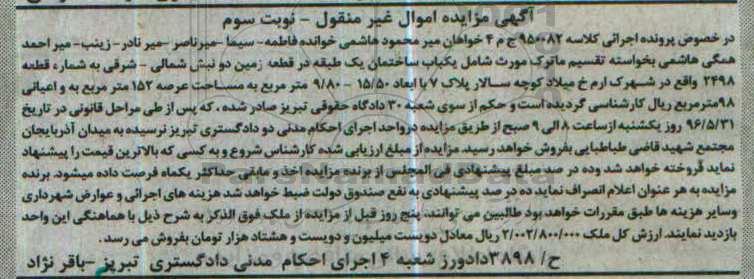 آگهی مزایده اموال غیر منقول - نوبت سوم
در خصوص پرونده اجرائی کلاسه ۹۵۰۰۸۲ ج م ۴ خواهان میر محمود هاشمی خوانده فاطمه- سیما -میرناصر -میر نادر- زینب- میر احمد
همگی هاشمی بخواسته تقسیم ماترک مورث شامل یکباب ساختمان یک طبقه در قطعه زمین دو نبش شمالی - شرقی به شماره قطعه
۲۴۹۸ واقع در شهرک ارم خ میلاد کوچه سالار پلاک ۷ با ابعاد ۱۵/۵۰ - ۹/۸۰ متر مربع به مساحت عرصه ۱۵۲ متر مربع به و اعیانی
۹۸مترمربع ریال کارشناسی گردیده است و حکم از سوی شعبه ۳۰ دادگاه حقوقی تبریز صادر شده ، که پس از طی مراحل قانونی در تاریخ
۹۶/۵/۳۱ روز یکشنبه ازساعت ۸ الی ۹ صبح از طریق مزایده درواحد اجرای احکام مدنی دو دادگستری تبریز نرسیده به میدان آذربایجان
مجتمع شهید قاضی طباطبایی بفروش خواهد رسید. مزایده از مبلغ ارزیابی شده کارشناس شروع و به کسی که بالاترین قیمت را پیشنهاد
نماید فروخته خواهد شد وده در صد مبلغ پیشنهادی فی المجلس از برنده مزایده اخذ و مابقی حداکثر یکماه فرصت داده میشود. برنده
مزایده به هر عنوان اعلام انصراف نماید ده در صد پیشنهادی به نفع صندوق دولت ضبط خواهد شد. هزینه های اجرائی و عوارض شهرداری
وسایر هزینه ها طبق مقررات خواهد بود طالبین می توانند، پنج روز قبل از مزایده از ملک فوق الذکر به شرح ذیل با هماهنگی این واحد
بازدید نمایند. ارزش کل ملک ۲/۰۰۲/۸۰۰/۰۰۰ ریال معادل دویست میلیون و دویست و هشتاد هزار تومان بفروش می رسد.
ح/ ۳۸۹۸دادورز شعبه ۴ اجرای احکام مدنی دادگستری تبریز -باقر نژاد